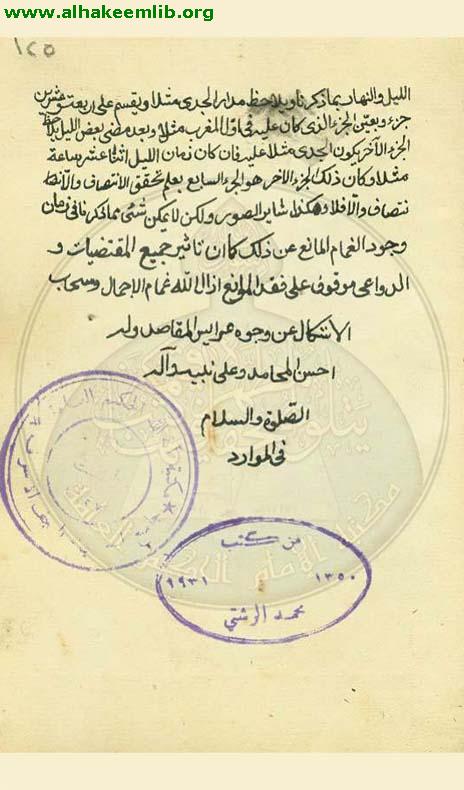 www.alhakeemlib.org
١٤٥
الليل والنهار بماذكرناو يلاحظ مدار الجدى مثلا ويقسم على اربعة وعشرين
جزء ويعيّن الجزء الذى كان عليه فى اول المغرب مثلا وبعد مضى بعض الليل يلاحظ
الجزء الآخر يكون الجدى مثلا عليه فان كان زمان الليل اثنا عشر ساعة
مثلا وكان ذلك الجزء الآخر هو الجزء السابع يعلم تحقق الانتصاف والا
نتصاف والافلا وهكذا ساير الصور ولكن لا يمكن شئ مماذكرنا فى زمان
وجود الغمام المانع عن ذلك كما ان تاثير جميع المقتضيات و
الدواعى موقوف على فقد الموانع ازال الله غمام الاجمال وسحاب
الاشكال عن وجوه عرايس المقاصد وله
احسن المحامد وعلى نبيه وآله
الصّلوة والسلام
فى الموارد
من كتب
١٣٥٠
١٩٣١
محمد الرشتي